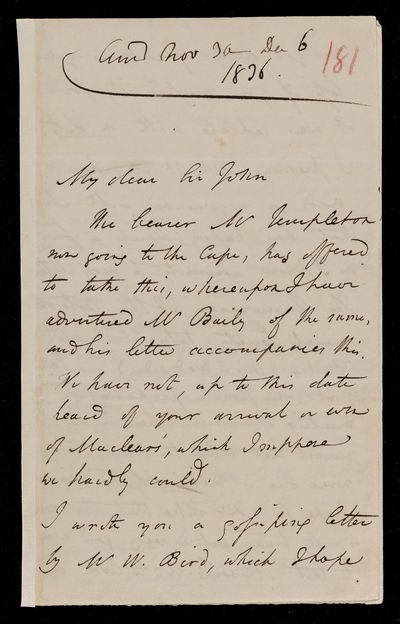 And Nov 30 Dec 6
1836.
181
My dear Sir John
The bearer Mr Templeton
now going to the Cape, has offered
to take this, whereupon I have
advertised Mr Baily of the same,
and his letter accompanies this.
We have not, up to this date
heard of your arrival or even
of Maclear's, which I suppose
we hardly could.
I wrote you a gossiping letter
by Mr W. Bird, which I hope